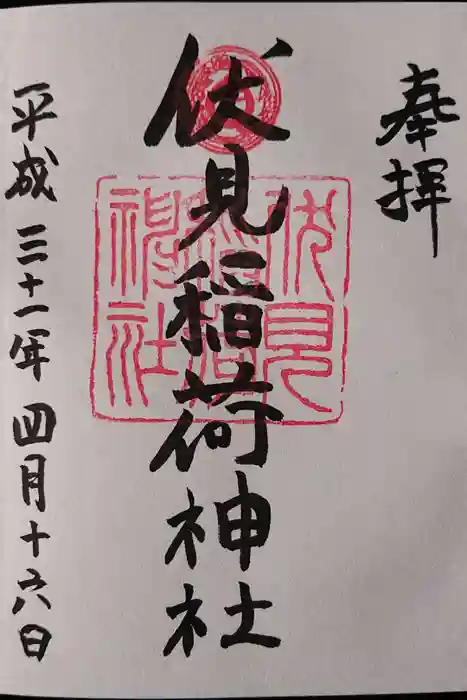 奉拝
伏見稲荷神社
伏見稲荷神社
平成三十一年四月十六日